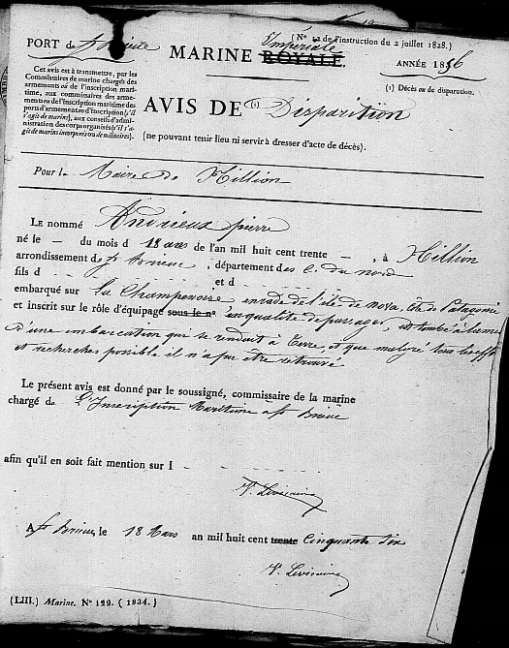 (N° 12 de l'instruction du 2 juillet 1828.)
PORT de St Brieuc
MARINE ROYALE. Impériale
ANNÉE 1856
Cet avis est à transmettre, par les
Commissaires de marine chargés des
armemens ou de l'inscription mari-
time, aux commissaires des arme-
mens ou de l'Inscription maritime des
ports d'armement ou d'Inscription (s'il
s'agit de marins), aux conseils d'admi-
nistration des corps organisés (s'il s'a-
git de marins incorporés ou de militaires).
(1) Décès ou de disparution.
AVIS DE (1) Disparition
(ne pouvant tenir lieu ni servir à dresser d'acte de décès).
Pour l. Maire de Hillion
LE nommé Andrieux pierre
né le — du mois d 18 ans de l'an mil huit cent trente — , à Hillion
arrondissement de St Brieuc , département des C. du nord
fils d - - - et d - - -
embarqué sur La Champenoise en rade de l'île de nova, Côte de Patagonie
et inscrit sur le rôle d'équipage sous le n° en qualité de passager, est tombé à la mer
d'une embarcation qui se rendait à terre, et que malgré tous les efforts
et recherches possible il n'a pu etre retrouvé
Le présent avis est donné par le soussigné, commissaire de la marine
chargé de L'Inscription Maritime à St Brieuc
afin qu'il en soit fait mention sur l - - -
A St Brieuc, le 18 Mars an mil huit cent trente Cinquante Six
(LIII.) Marine. N° 129. (1834.)